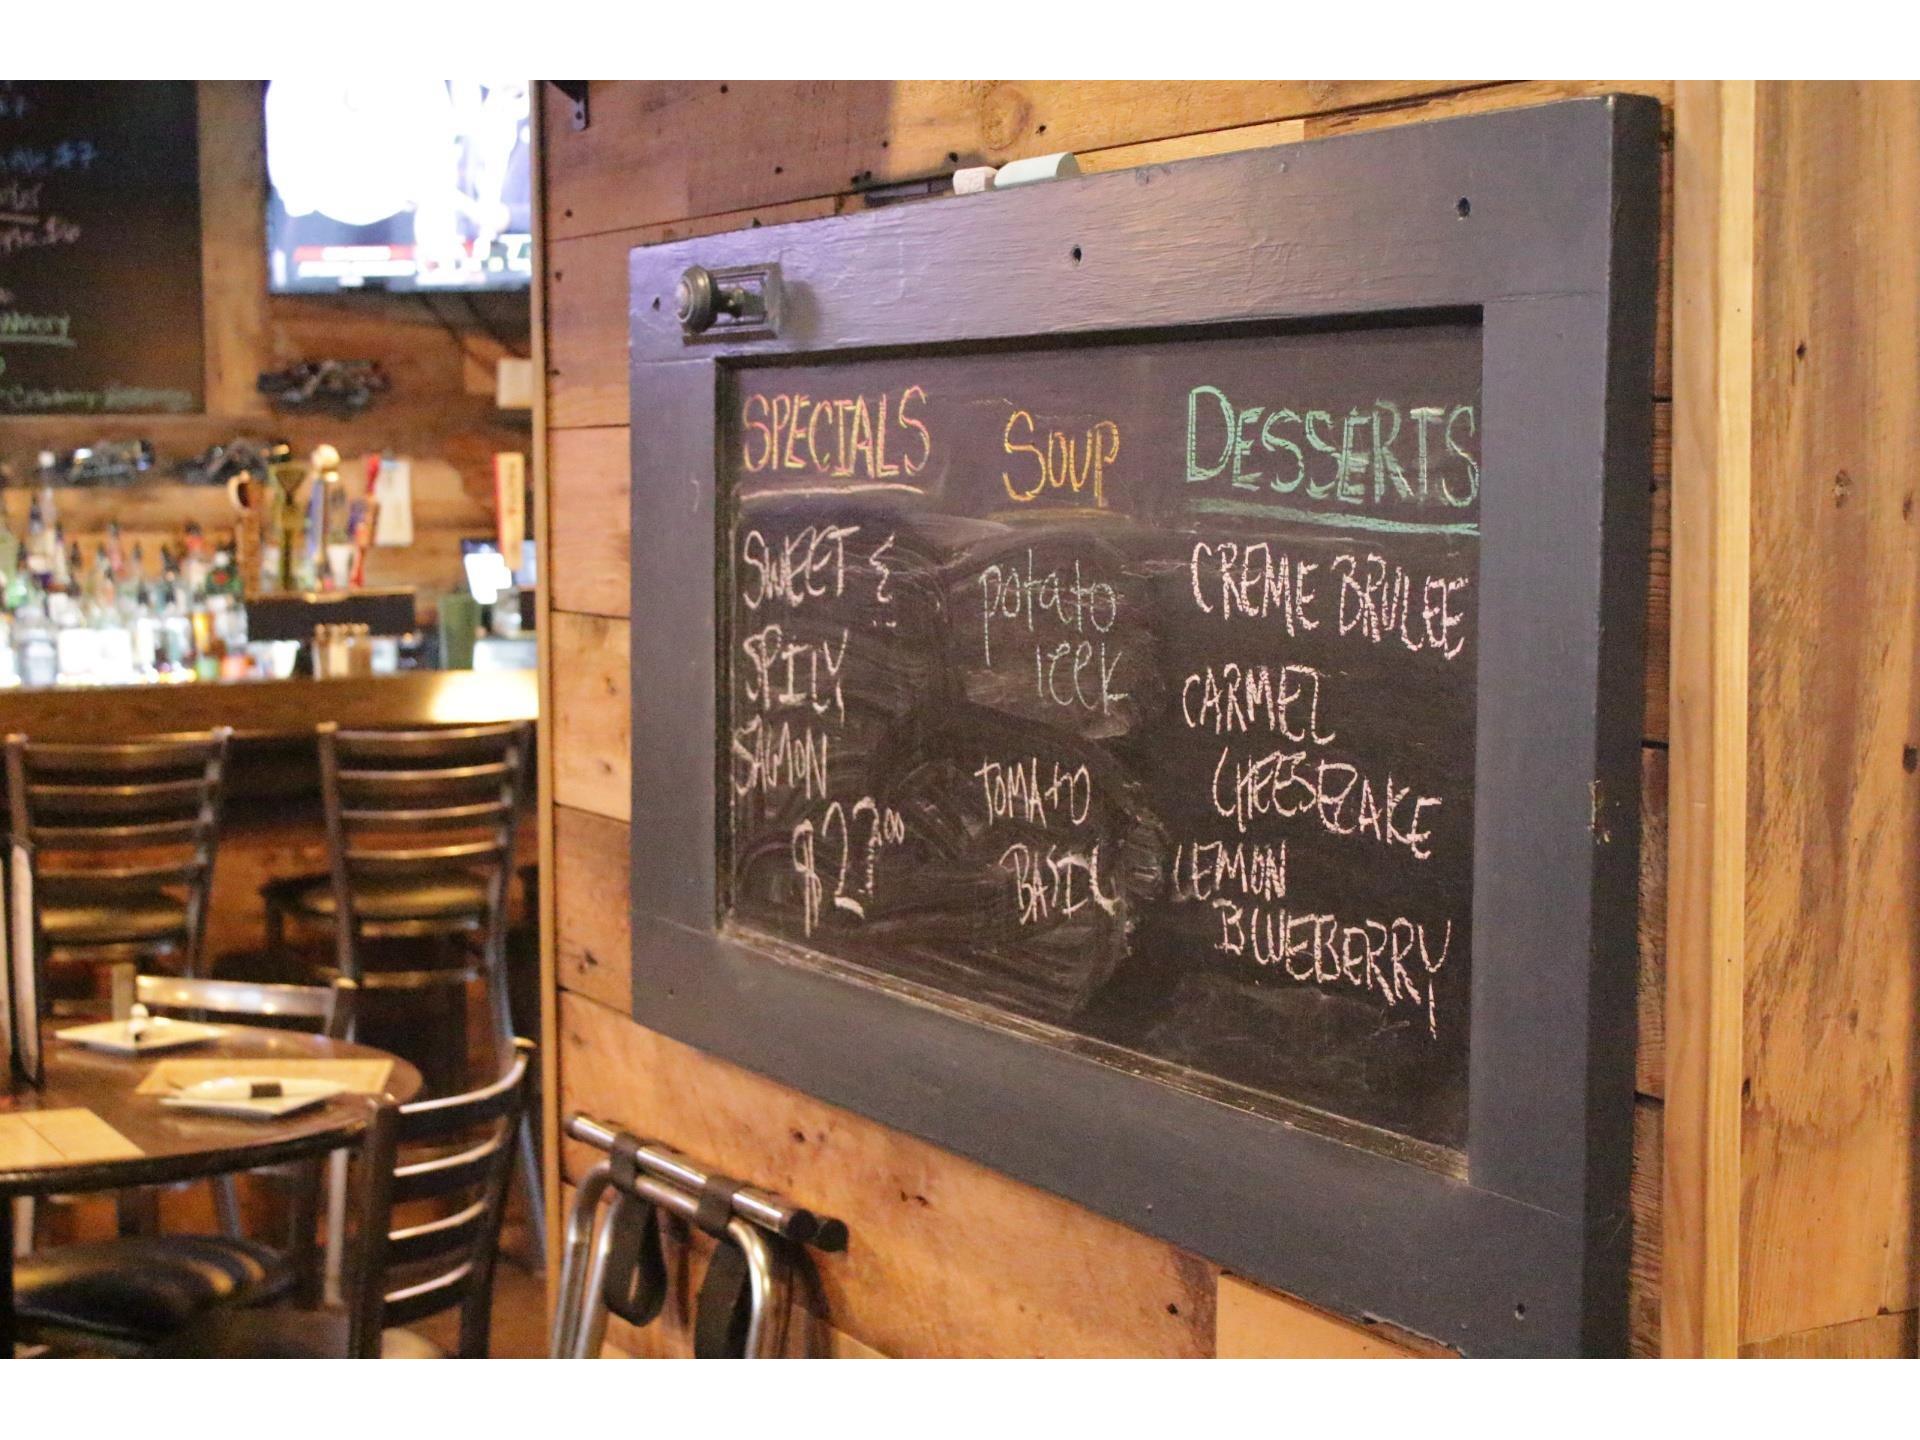 SPECIALS
SWEET &
SPICY
SALMON
$23.00
SOUP
potato
leek
TOMATO
BASIL
DESSERTS
CREME BRULEE
CARMEL
CHEESECAKE
LEMON
BLUEBERRY